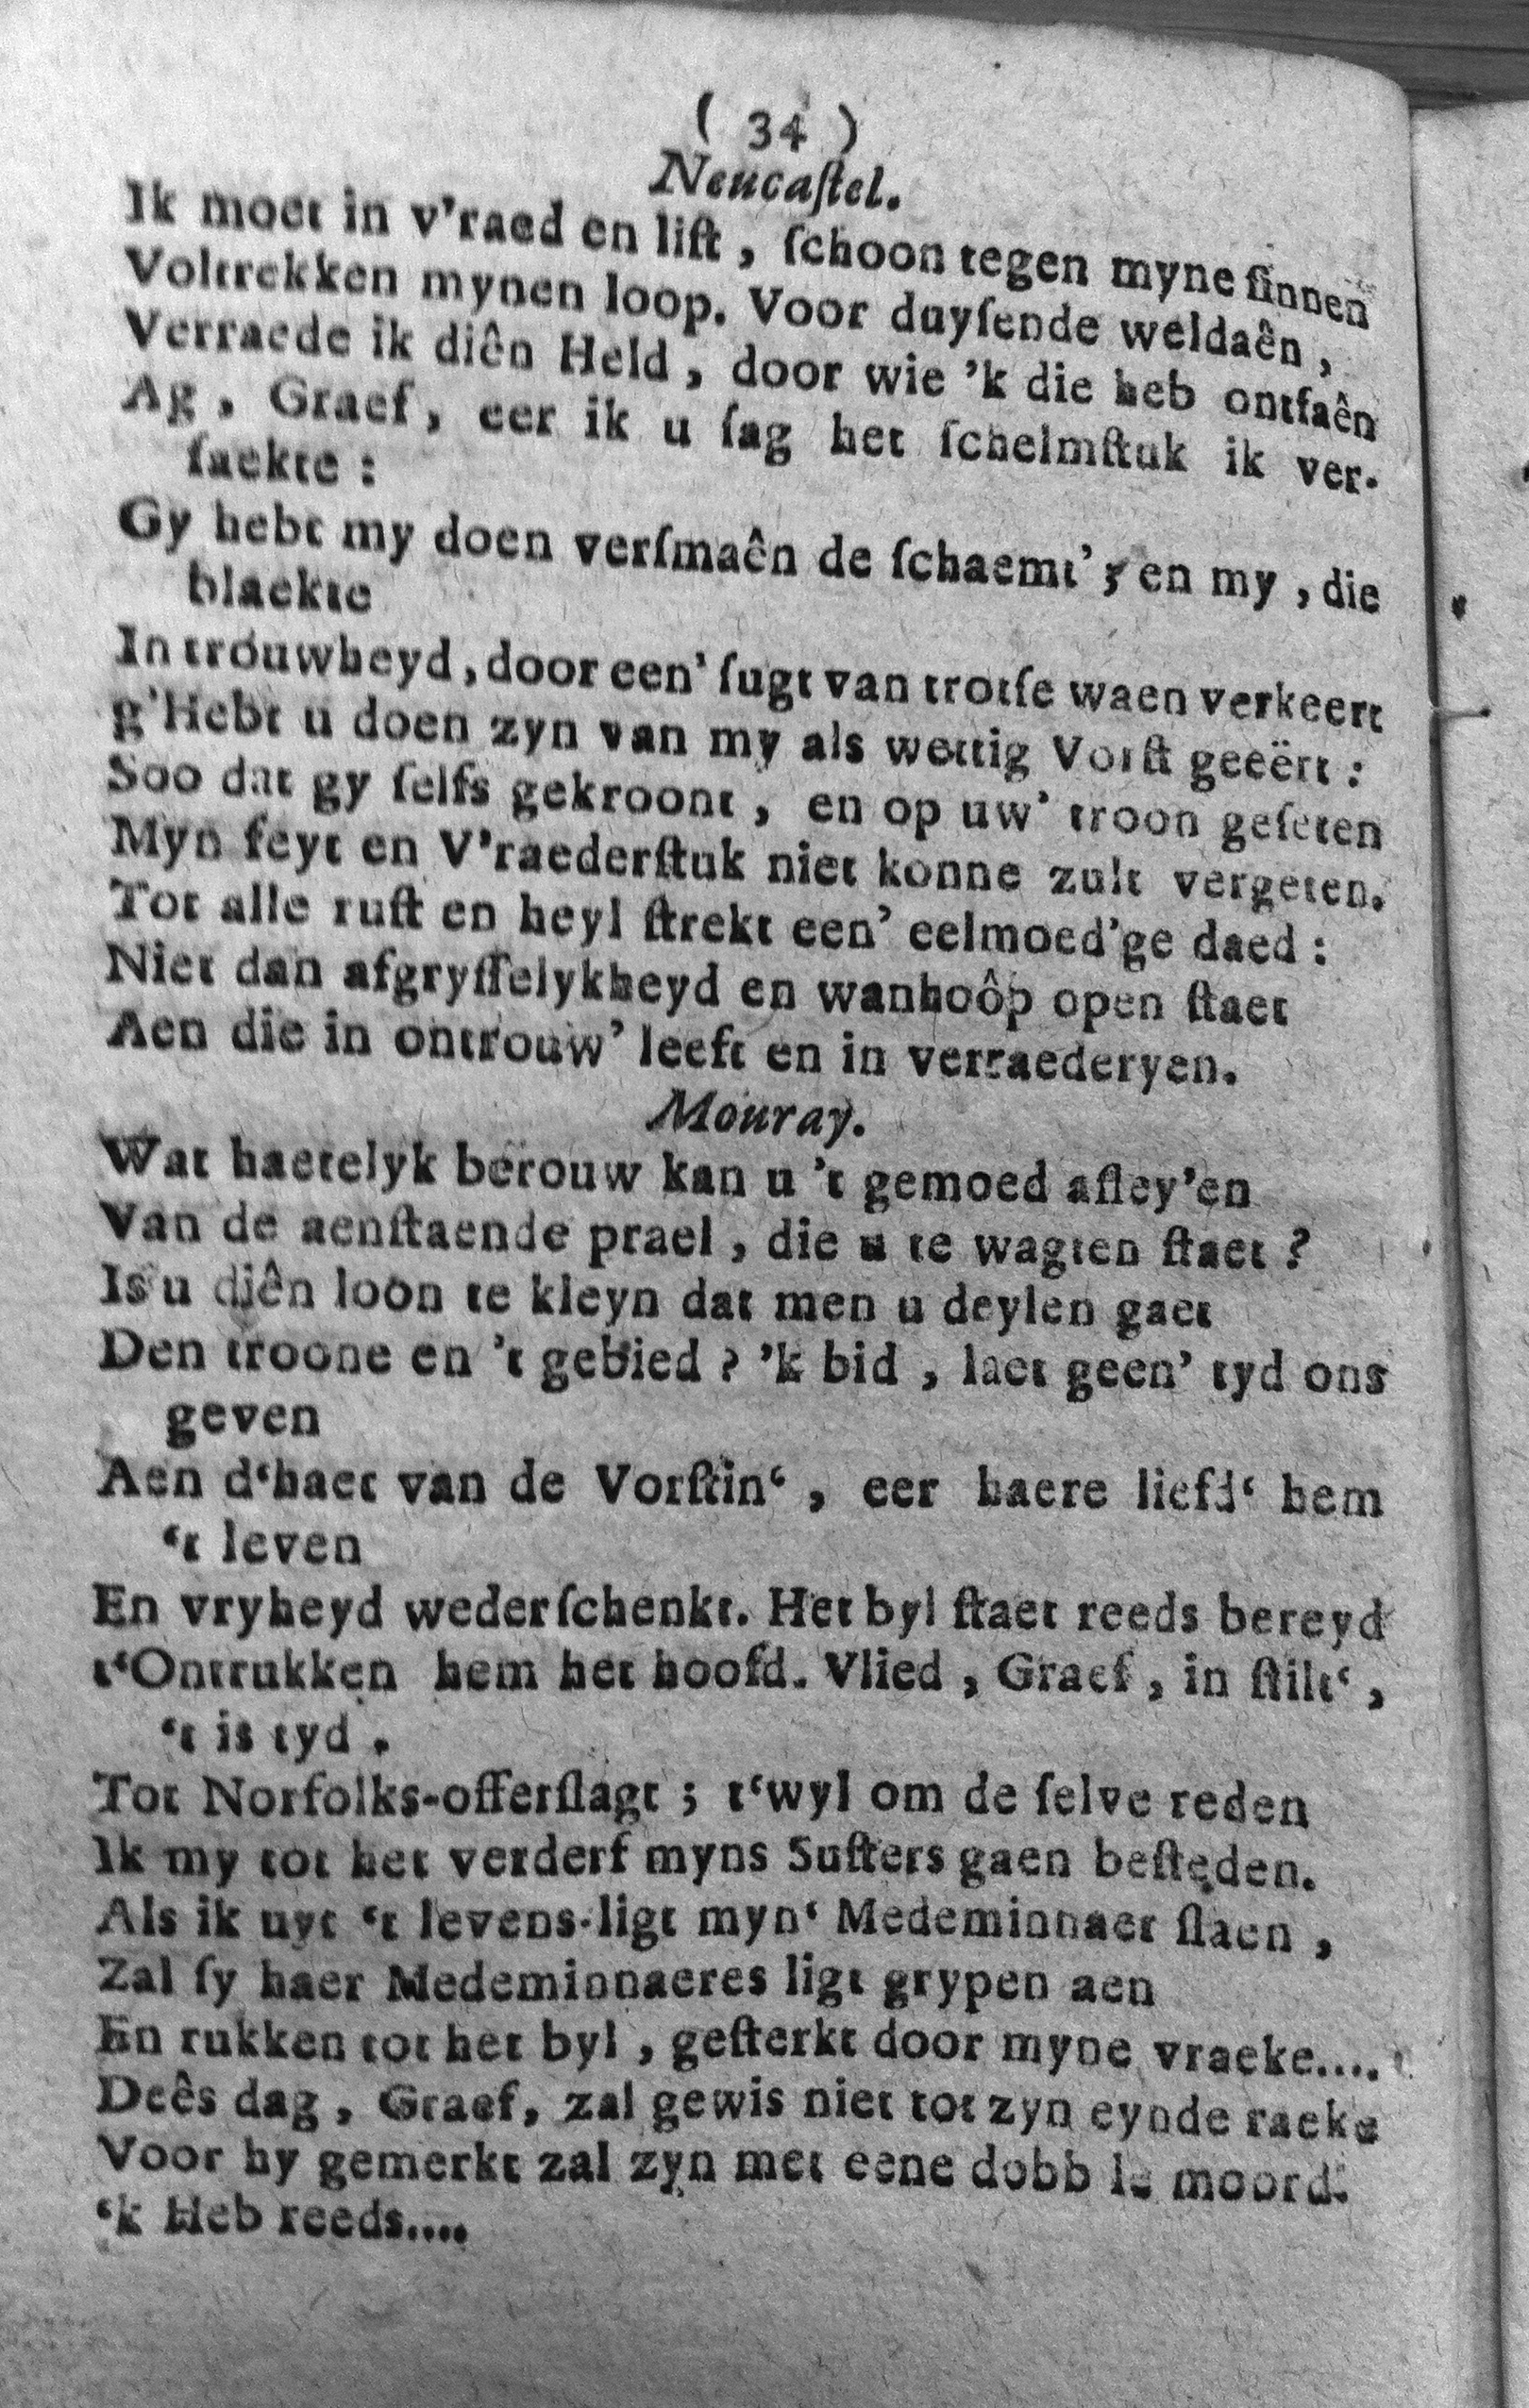 ( 34 )
Neucaſtel.
Ik moet in v'raed en liſt , ſchoon tegen myne ſinnen
Voltrekken mynen loop. Voor duyſende weldaên ,
Verraede ik diên Held , door wie 'k die heb ontfaên
Ag , Graef , eer ik u ſag het ſchelmſtuk ik ver-
ſaekte :
Gy hebt my doen verſmaên de ſchaemt' ; en my , die
blaekte
In trouwheyd , door een' ſugt van trotſe waen verkeert
g'Hebt u doen zyn van my als wettig Vorſt geeërt :
Soo dat gy ſelfs gekroont , en op uw' troon geſeten
Myn feyt en V'raederſtuk niet konne zult vergeten.
Tot alle ruſt en heyl ſtrekt een' eelmoed'ge daed :
Niet dan afgryſſelykheyd en wanhoôp open ſtaet
Aen die in ontrouw' leeft en in verraederyen.
Mouray.
Wat haetelyk berouw kan u 't gemoed afley'en
Van de aenſtaende prael , die u te wagten ſtaet ?
Is u diên loon te kleyn dat men u deylen gaet
Den troone en 't gebied ? 'k bid , laet geen' tyd ons
geven
Aen d‘haet van de Vorſtin‘ , eer haere liefd‘ hem
‘t leven
En vryheyd wederſchenkt. Het byl ſtaet reeds bereyd
t‘Ontrukken hem het hoofd. Vlied , Graef , in ſtilt‘ ,
‘t is tyd .
Tot Norfolks-offerſlagt ; t‘wyl om de ſelve reden
Ik my tot het verderf myns Suſters gaen beſteden.
Als ik uyt ‘t levens-ligt myn‘ Medeminnaer ſlaen ,
Zal ſy haer Medeminnaeres ligt grypen aen
En rukken tot het byl , geſterkt door myne vraeke....
Deês dag , Graef , zal gewis niet tot zyn eynde raeke
Voor hy gemerkt zal zyn met eene dobb le moord.
‘k Heb reeds....